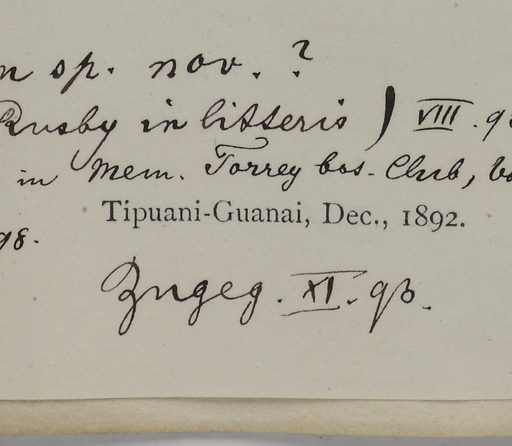 n sp. nov. ?
Rusby in litteris) VIII. 9
in Mem. Torrey bot. Club,
Tipuani-Guanai, Dec., 1892.
98.
Zugeg. XI. 93.